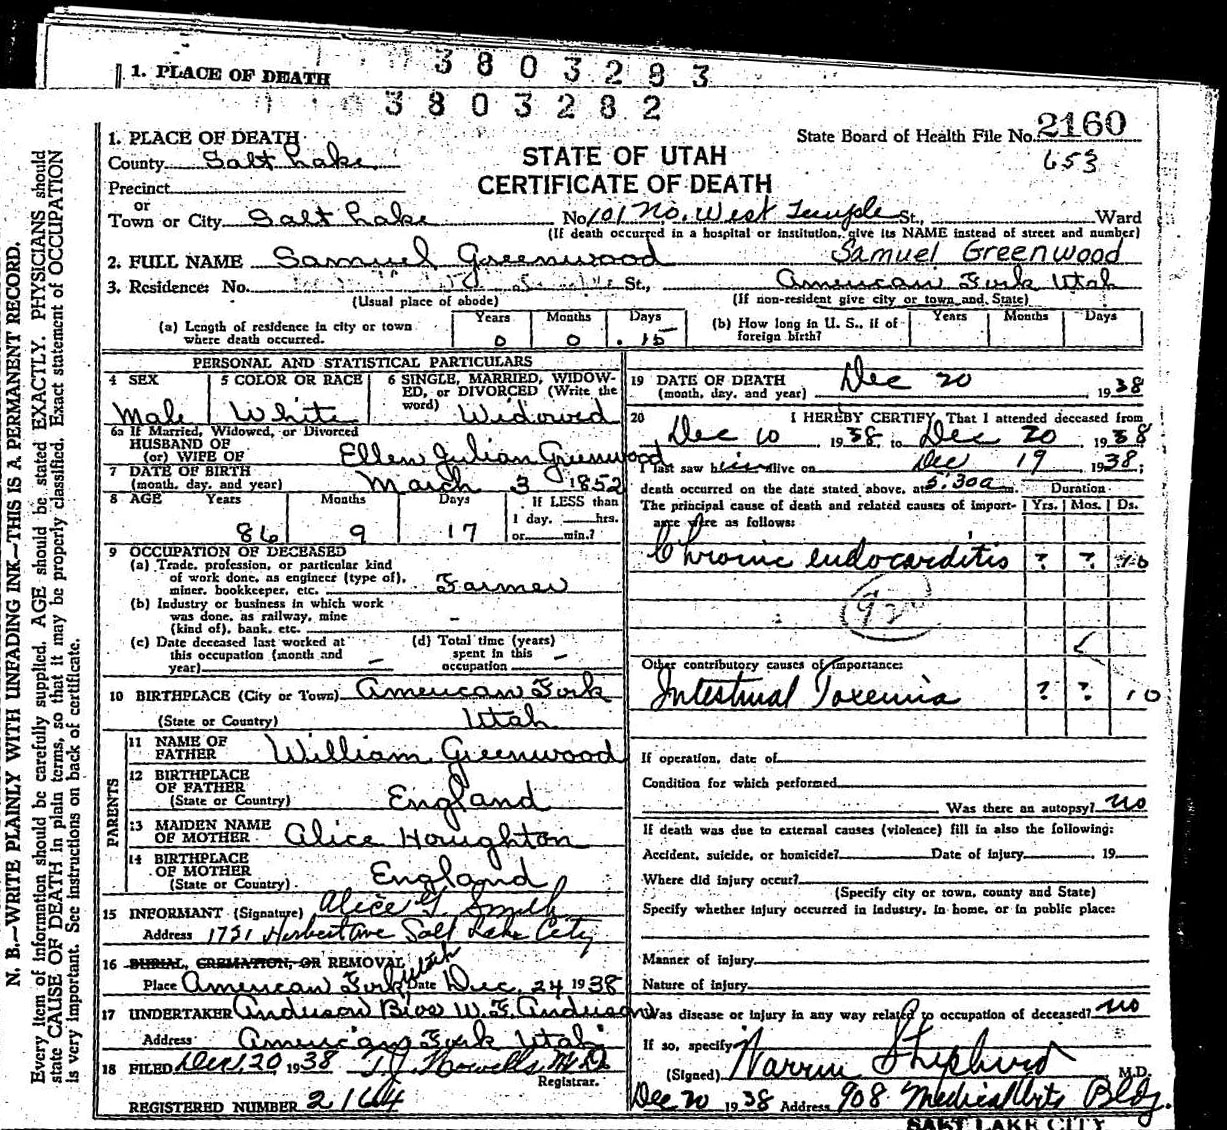 1. PLACE OF DEATH
3803293
3803282
1. PLACE OF DEATH
State Board of Health File No. 2160
653
County Salt Lake
STATE OF UTAH
CERTIFICATE OF DEATH
Precinct
or
Town or City Salt Lake No. 101 No. West Temple St., Ward
(If death occurred in a hospital or institution, give its NAME instead of street and number)
2. FULL NAME Samuel Greenwood Samuel Greenwood
3. Residence: No. St., American Fork Utah
(Usual place of abode) (If non-resident give city or town and State)
(a) Length of residence in city or town where death occurred. Years 0 Months 0 Days 15
(b) How long in U. S., if of foreign birth? Years Months Days
PERSONAL AND STATISTICAL PARTICULARS
4 SEX Male
5 COLOR OR RACE White
6 SINGLE, MARRIED, WIDOWED, OR DIVORCED (Write the word) Widowed
6a If Married, Widowed, or Divorced
HUSBAND OF
(or) WIFE OF Ellen Julian Greenwood
7 DATE OF BIRTH
(month, day, and year) March 3 1852
8 AGE Years 86 Months 9 Days 17 If LESS than 1 day, hrs. or min.?
9 OCCUPATION OF DECEASED
(a) Trade, profession, or particular kind of work done, as engineer (type of), miner, bookkeeper, etc. Farmer
(b) Industry or business in which work was done, as railway, mine (kind of), bank, etc. -
(c) Date deceased last worked at this occupation (month and year) -
(d) Total time (years) spent in this occupation -
10 BIRTHPLACE (City or Town) American Fork
(State or Country) Utah
PARENTS
11 NAME OF FATHER William Greenwood
12 BIRTHPLACE OF FATHER
(State or Country) England
13 MAIDEN NAME OF MOTHER Alice Houghton
14 BIRTHPLACE OF MOTHER
(State or Country) England
15 INFORMANT (Signature) Alice G. Smith
Address 1751 Herbert Ave Salt Lake City Utah
16 BURIAL, CREMATION, OR REMOVAL
Place American Fork Date Dec. 24 1938
17 UNDERTAKER Anderson Bros W. F. Anderson
Address American Fork Utah
18 FILED Dec. 20 1938 T.J. Howells M.D.
Registrar.
REGISTERED NUMBER 2164
19 DATE OF DEATH
(month, day, and year) Dec 20 1938
20 I HEREBY CERTIFY, That I attended deceased from
Dec 10 1938, to Dec 20 1938
I last saw him alive on Dec 19 1938;
death occurred on the date stated above, at 5:30a m. Duration
The principal cause of death and related causes of importance were as follows: Yrs. Mos. Ds.
Chronic endocarditis ? ? 10
92
Other contributory causes of importance:
Intestinal Toxemia ? ? 10
If operation, date of
Condition for which performed
Was there an autopsy? no
If death was due to external causes (violence) fill in also the following:
Accident, suicide, or homicide? Date of injury , 19
Where did injury occur?
(Specify city or town, county and State)
Specify whether injury occurred in industry, in home, or in public place:
Manner of injury
Nature of injury
Was disease or injury in any way related to occupation of deceased? no
If so, specify
(Signed) Warren Shepherd M.D.
Dec 20 1938 Address 908 Medical Arts Bldg.
SALT LAKE CITY
N. B.—WRITE PLAINLY WITH UNFADING INK—THIS IS A PERMANENT RECORD.
Every item of information should be carefully supplied. AGE should be stated EXACTLY. PHYSICIANS should
state CAUSE OF DEATH in plain terms, so that it may be properly classified. Exact statement of OCCUPATION
is very important. See instructions on back of certificate.